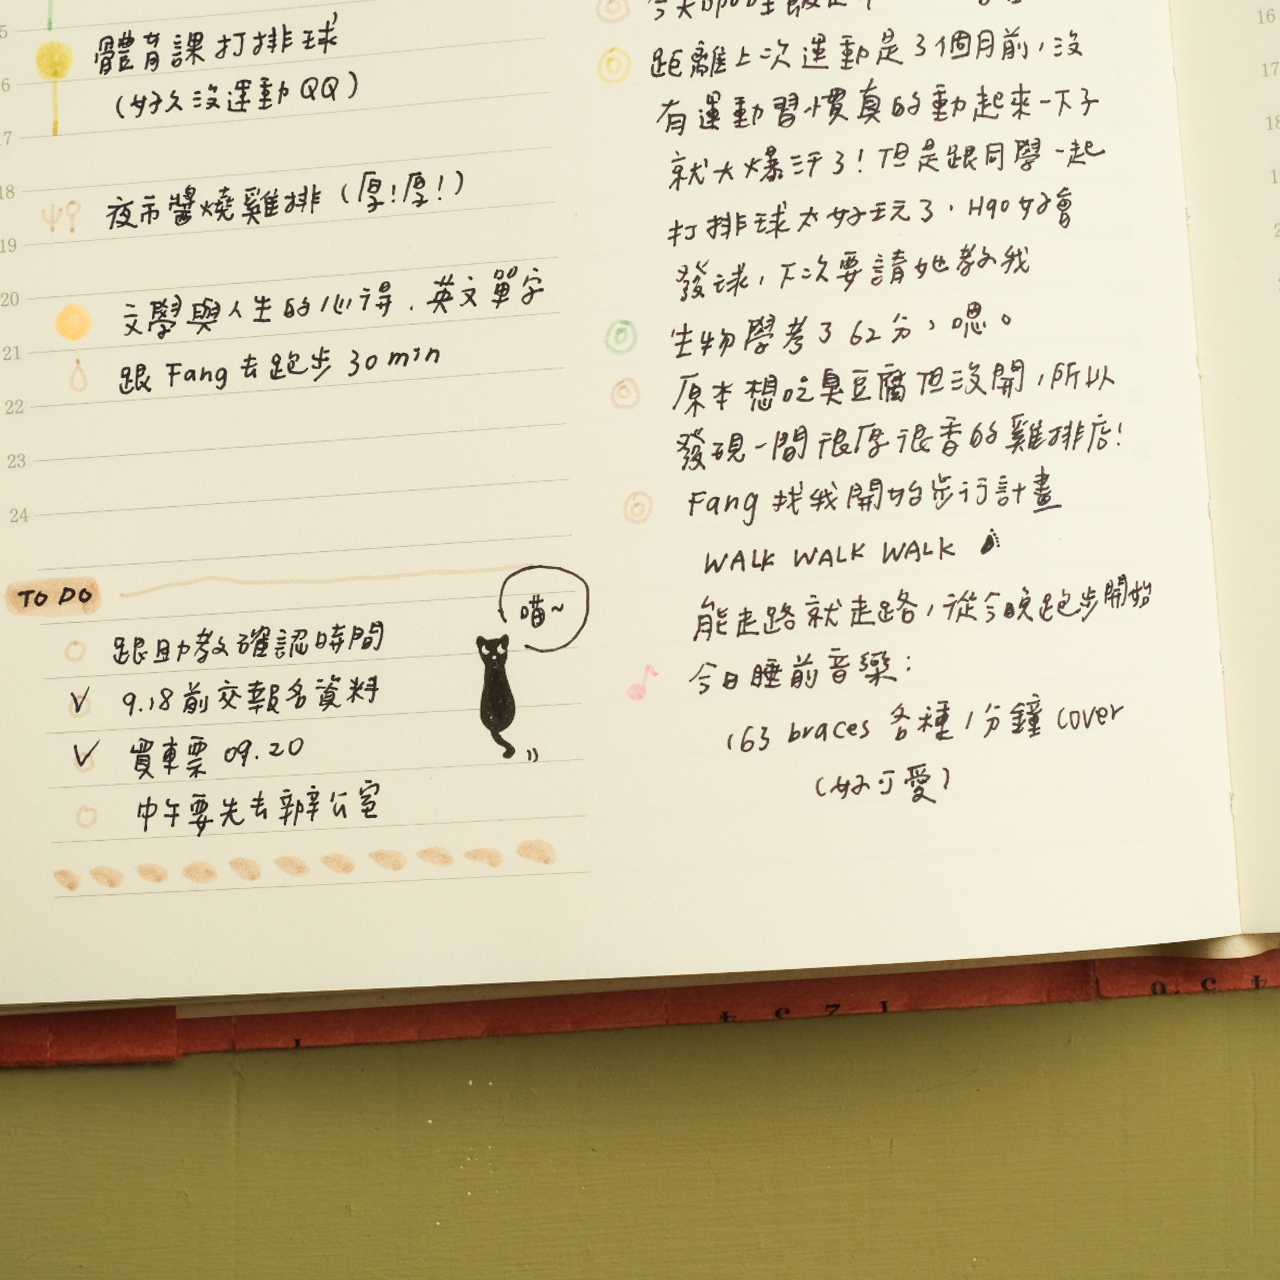 5
體育課打排球
6
(好久沒運動QQ)
17
18
夜市醬燒雞排(厚!厚!)
19
20
文學與人生的心得．英文單字
21
跟 Fang 去跑步 30 min
22
23
24
TO DO
跟助教確認時間
V 9.18前交報名資料
V 買車票 09.20
中午要先去辦公室
喵~
距離上次運動是3個月前，沒
有運動習慣真的動起來一下子
就大爆汗了！但是跟同學一起
打排球太好玩了，Hao好會
發球，下次要請她教我
生物學考了62分，嗯。
原本想吃臭豆腐但沒開，所以
發現一間很厚很香的雞排店！
Fang 找我開始步行計畫
WALK WALK WALK
能走路就走路，從今晚跑步開始
今日睡前音樂：
163 braces 各種1分鐘cover
(好可愛)
16
17
18